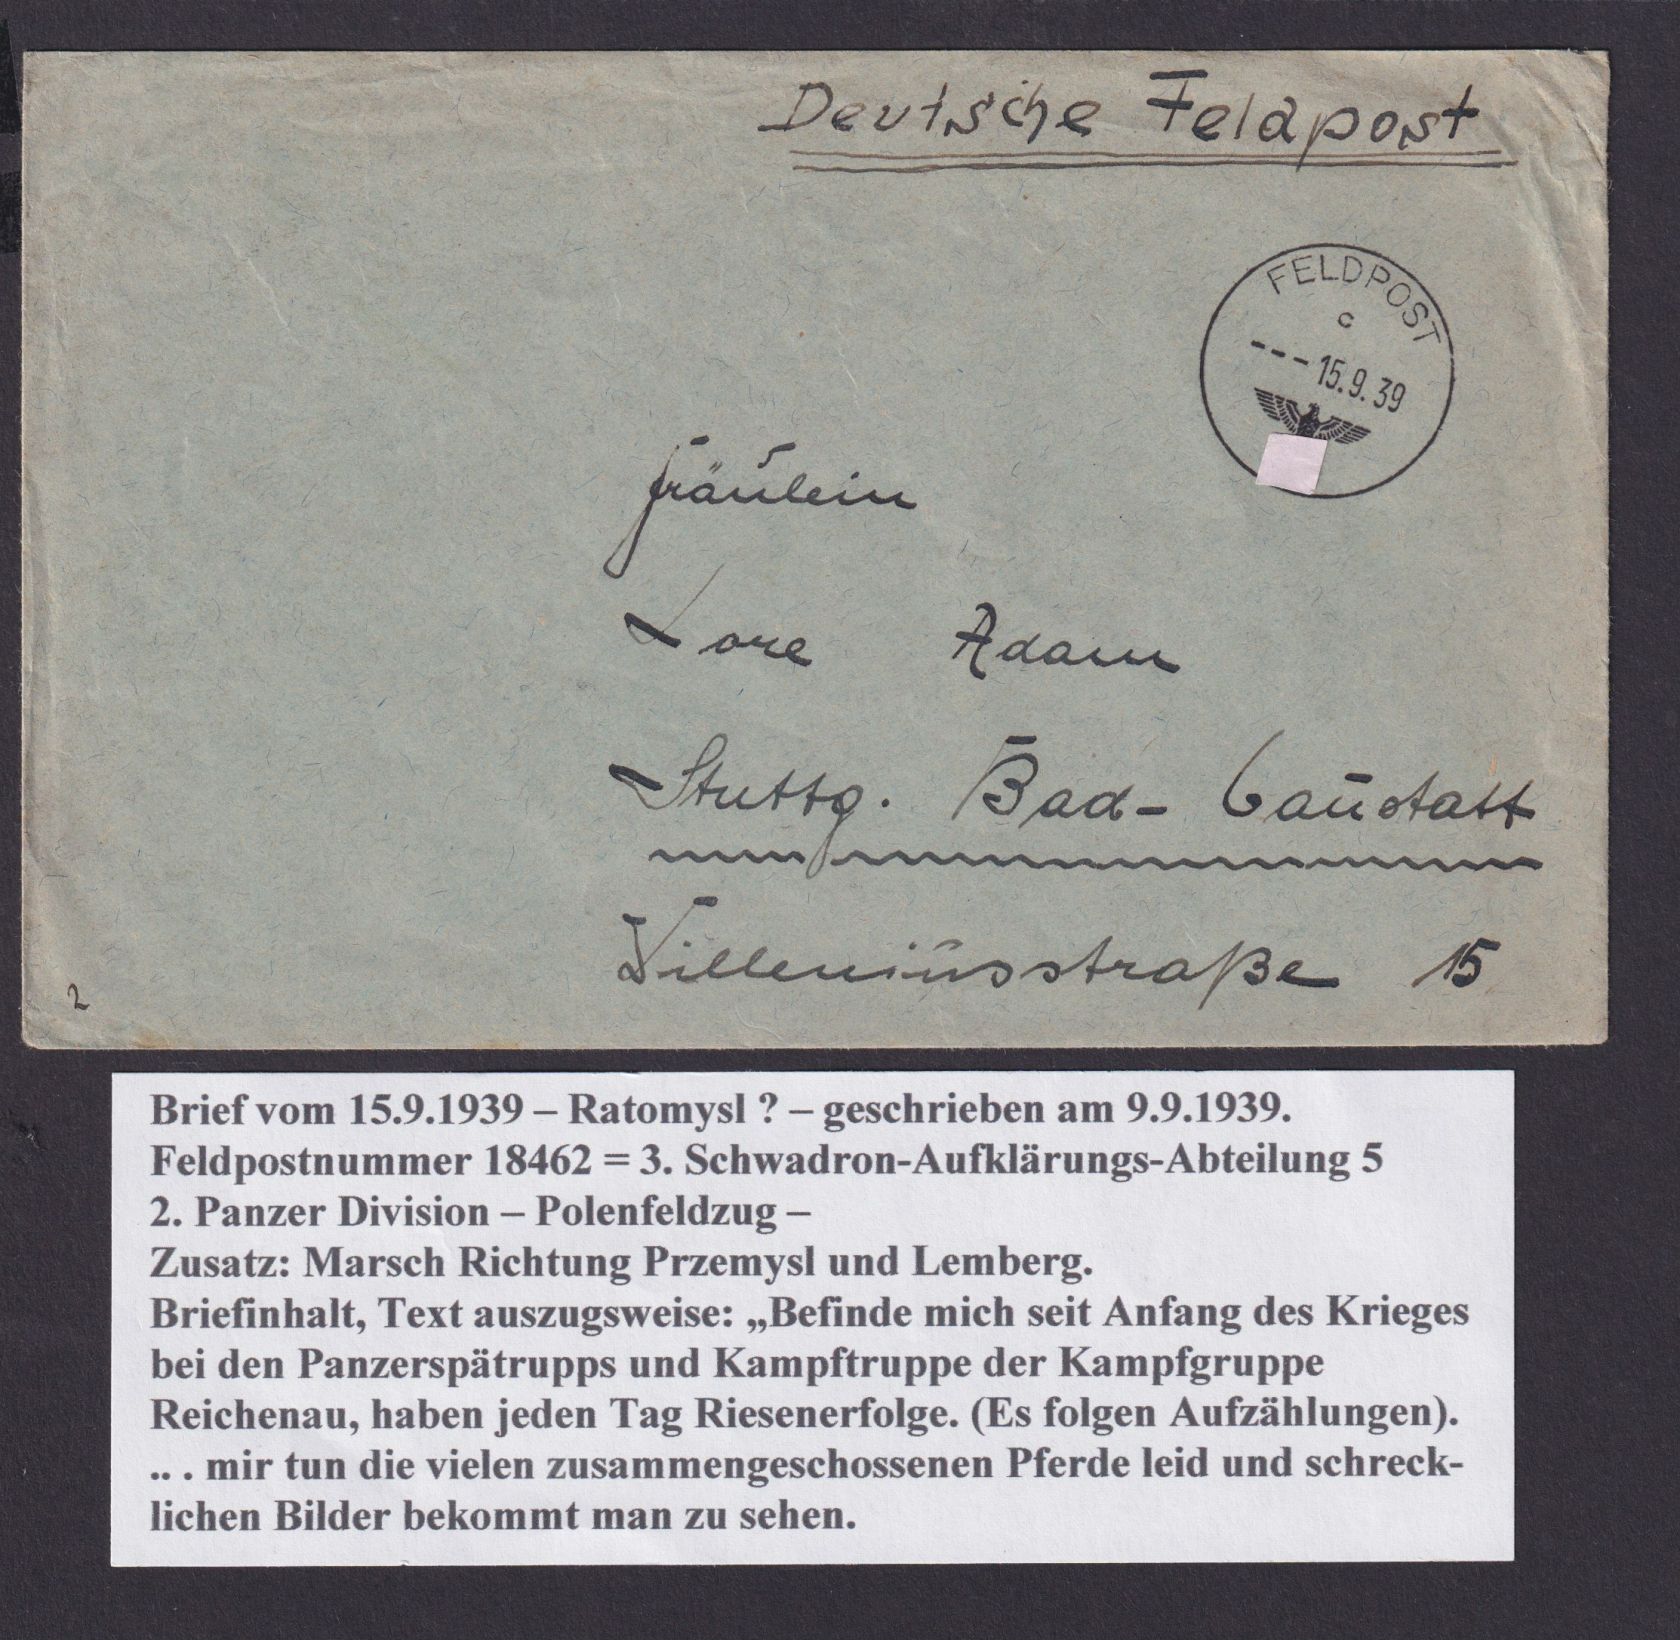 Deutsche Feldpost
FELDPOST
c
--- 15.9.39
Fräulein
Lore Adam
Stuttg. Bad- Canstatt
15
2
Brief vom 15.9.1939 – Ratomysl ? – geschrieben am 9.9.1939.
Feldpostnummer 18462 = 3. Schwadron-Aufklärungs-Abteilung 5
2. Panzer Division – Polenfeldzug –
Zusatz: Marsch Richtung Przemysl und Lemberg.
Briefinhalt, Text auszugsweise: „Befinde mich seit Anfang des Krieges
bei den Panzerspätrupps und Kampftruppe der Kampfgruppe
Reichenau, haben jeden Tag Riesenerfolge. (Es folgen Aufzählungen).
.. . mir tun die vielen zusammengeschossenen Pferde leid und schreck-
lichen Bilder bekommt man zu sehen.